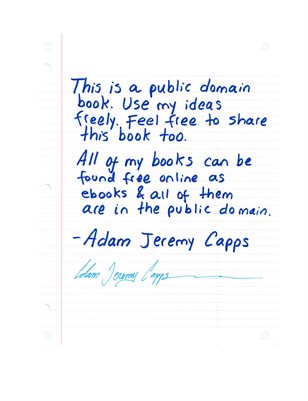 This is a public domain
book. Use my ideas
freely. Feel free to share
this book too.
All of my books can be
found free online as
ebooks & all of them
are in the public domain.
- Adam Jeremy Capps
Adam Jeremy Capps